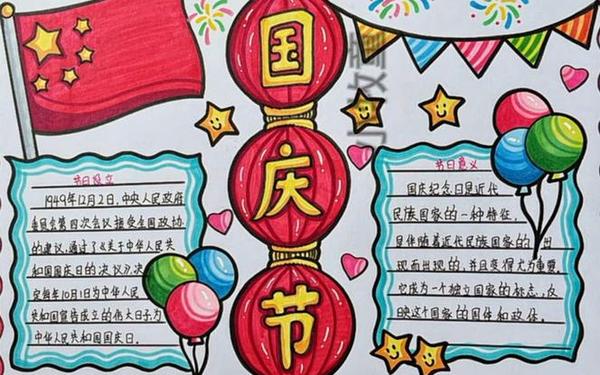 国
庆
节
节日设立
1949年12月2日,中央人民政府
委员会第四次会议接受全国政协
的建议,通过了《关于中华人民共
和国国庆日的决议》,决
定每年10月1日为中华人民
共和国宣告成立的伟大日子为
中华人民共和国国庆日。
节日意义
国庆纪念日是近代
民族国家的一种特征,
是伴随着近代民族国家的出
现而出现的,并且变得尤为重要,
它成为一个独立国家的标志,反
映这个国家的国体和政体。